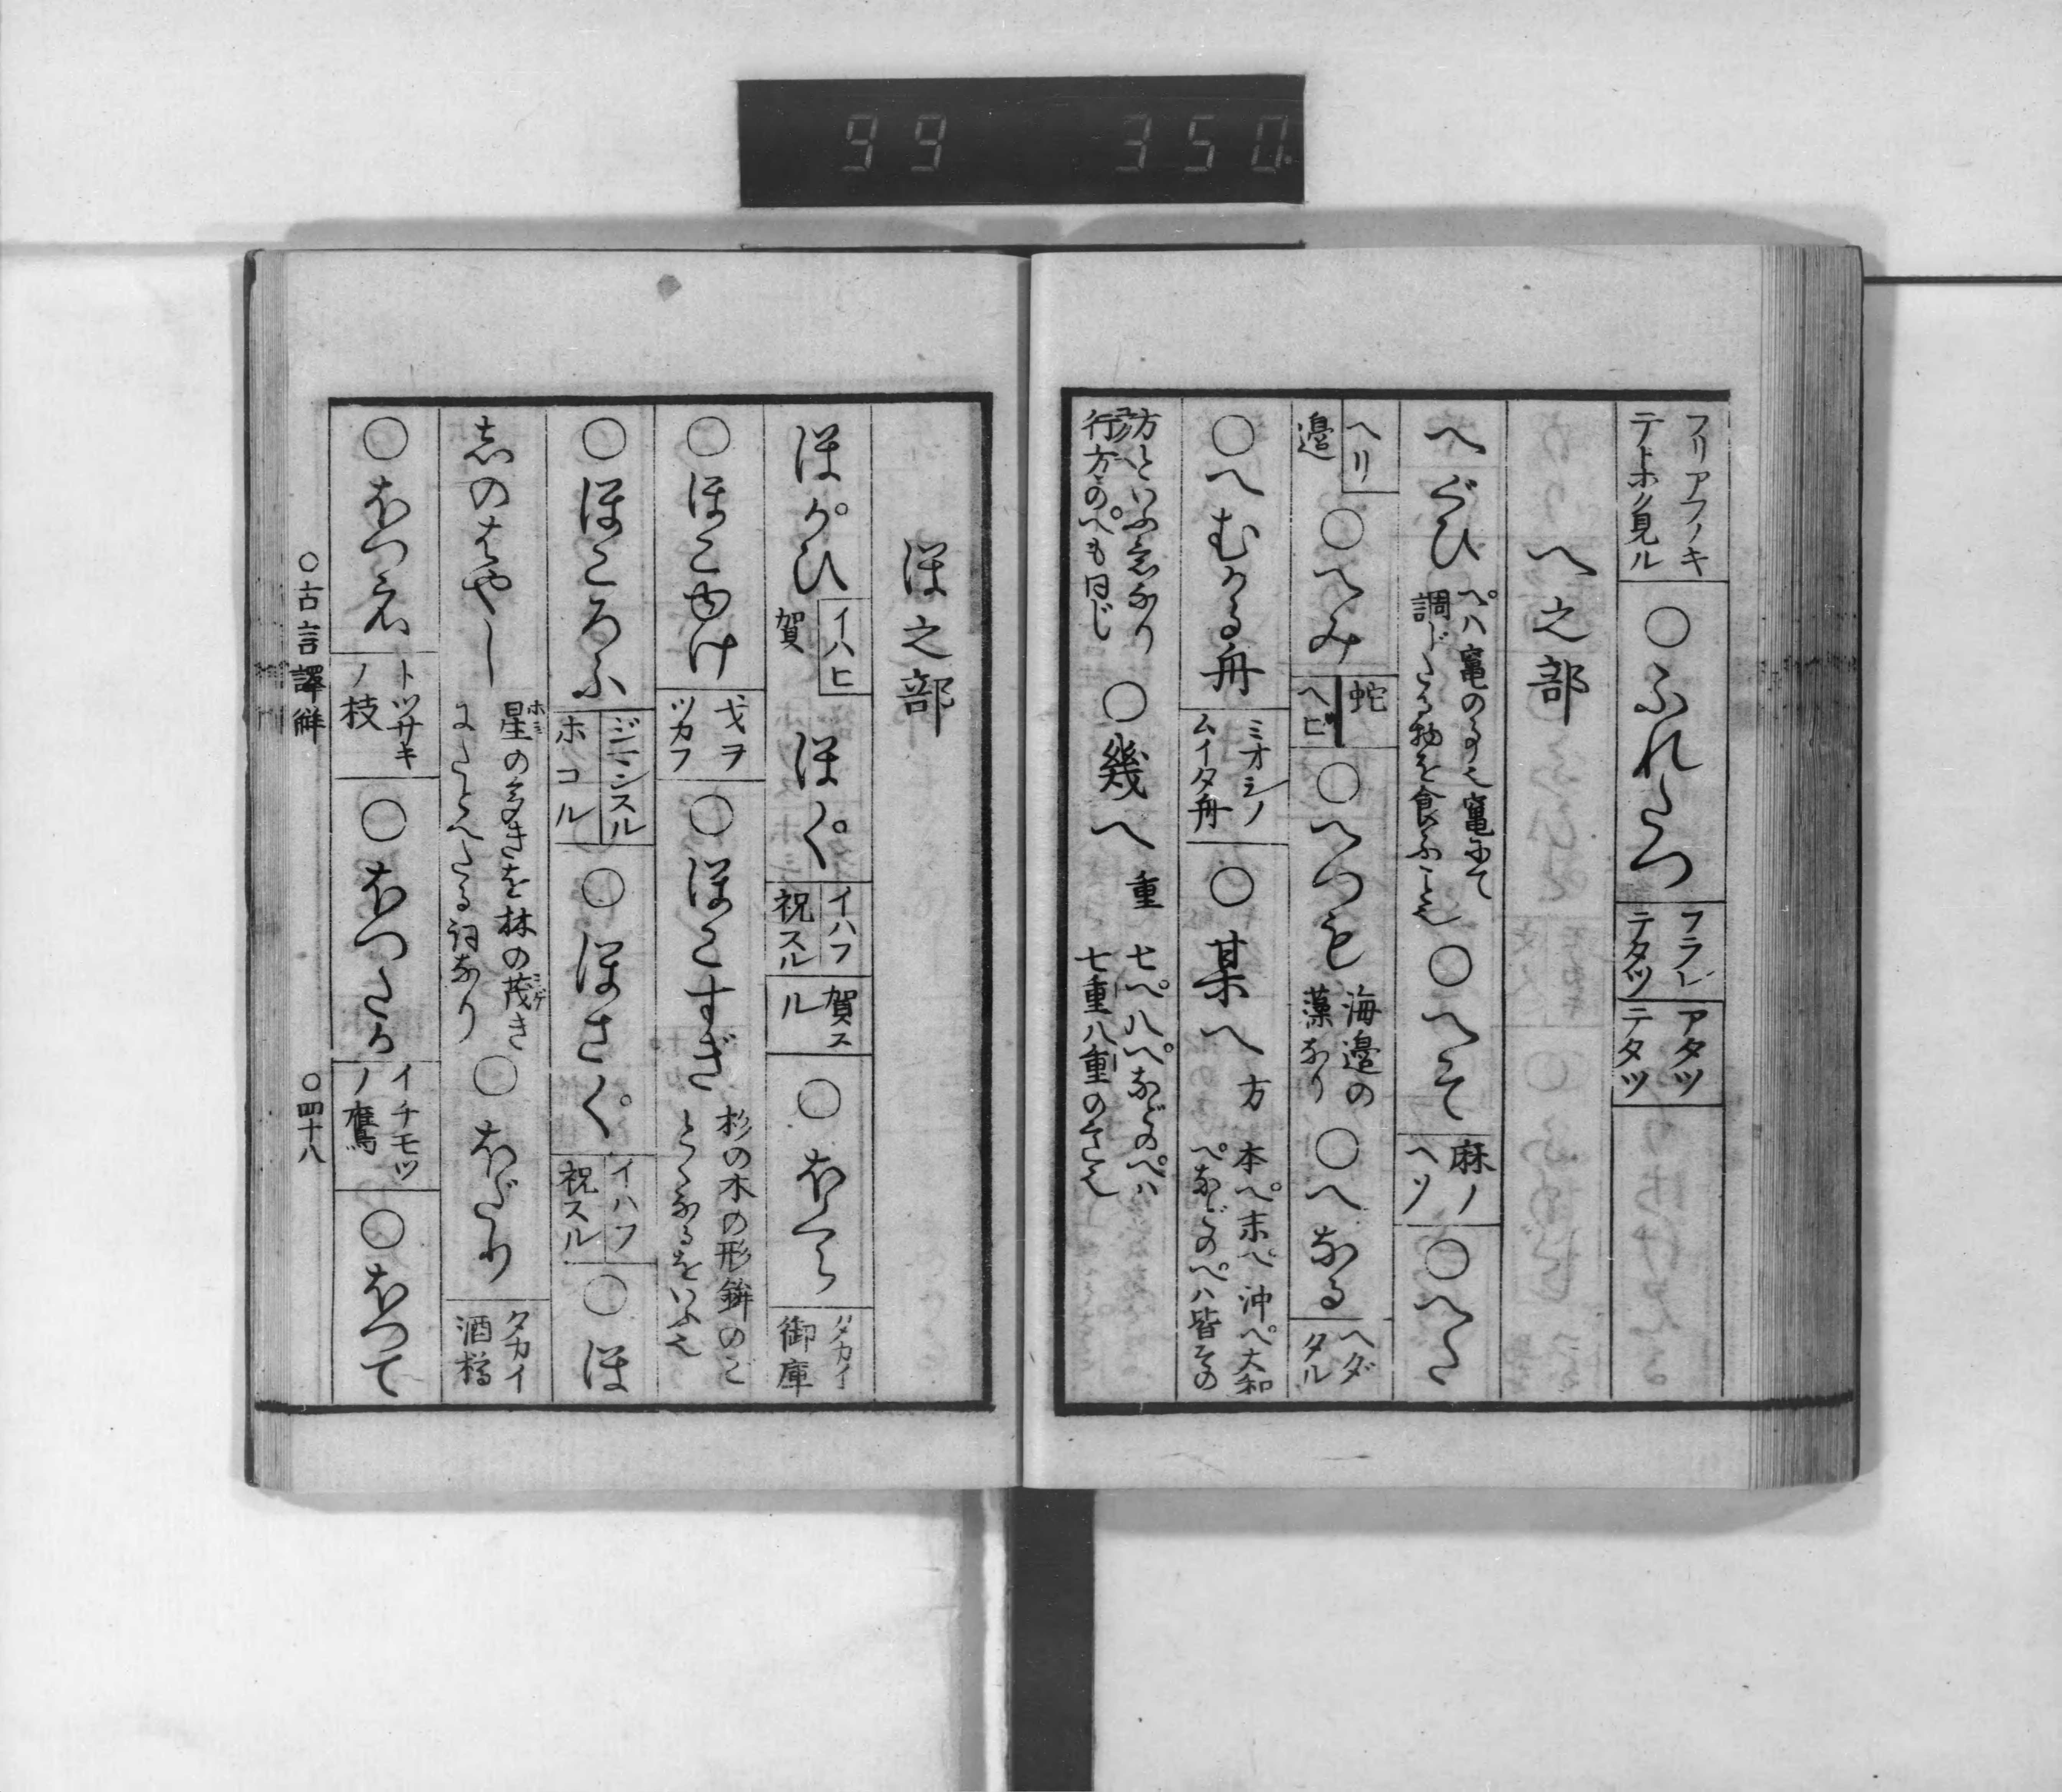 99 350
フリアフノキ
テトホク見ル
○ふれたつ
フラレ
テタツ
アタツ
テタツ
へ之部
へぐひ
ペハ竃の事也竃にて
調じたる物を食ふこと也
○へそ
麻ノ
ヘソ
○へた
ヘリ
邉
○へみ
蛇
ヘビ
○へつも
海邉の
藻なり
○へなる
ヘダ
タル
○へむかる舟
ミオシノ
ムイタ舟
○某へ
方
本ペ末ペ沖ペ大和
ペなどのペハ皆その
方といふ意なり
行方のペも同じ
○幾へ
重
七ペ八ペなどのペハ
七重八重のこと也
ほ之部
ほがひ
イハヒ
賀
ほぐ
イハフ
祝スル
賀ス
ル
○ほくら
御庫
○ほこゆけ
戈ヲ
ツカフ
○ほこすぎ
杉の木の形鉾のご
とくなるをいふ也
○ほころふ
ジマンスル
ホコル
○ほさく
イハフ
祝スル
○ほ
しのはやし
星の多きを林の茂き
ホシ
シゲ
にたとへたる詞なり
○ほだり
タカイ
酒樽
○ほつえ
トツサキ
ノ枝
○ほつたか
イチモツ
ノ鷹
○ほつて
○古言譯觧
○四十八